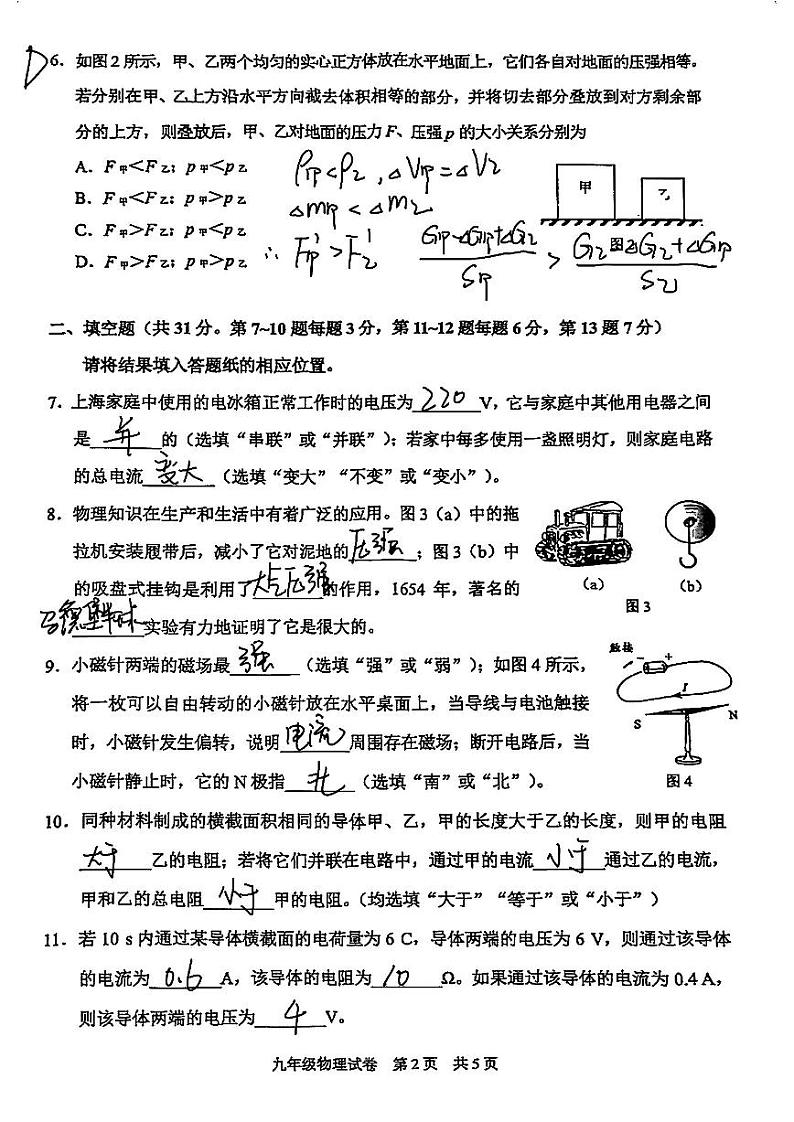 D 6. 如图2所示，甲、乙两个均匀的实心正方体放在水平地面上，它们各自对地面的压强相等。
若分别在甲、乙上方沿水平方向截去体积相等的部分，并将切去部分叠放到对方剩余部
分的上方，则叠放后，甲、乙对地面的压力F、压强p的大小关系分别为
A. F甲<F乙；p甲<p乙
B. F甲<F乙；p甲>p乙
C. F甲>F乙；p甲<p乙
D. F甲>F乙；p甲>p乙
ρ甲<ρ乙，ΔV甲=ΔV乙
Δm甲<Δm乙
∴ F甲'>F乙'
G甲-ΔG甲+ΔG乙 / S甲 > G乙-ΔG乙+ΔG甲 / S乙
甲 乙
图2
二、填空题（共31分。第7~10题每题3分，第11~12题每题6分，第13题7分）
请将结果填入答题纸的相应位置。
7. 上海家庭中使用的电冰箱正常工作时的电压为 220 V，它与家庭中其他用电器之间
是 并 的（选填“串联”或“并联”）；若家中每多使用一盏照明灯，则家庭电路
的总电流 变大 （选填“变大”“不变”或“变小”）。
8. 物理知识在生产和生活中有着广泛的应用。图3（a）中的拖
拉机安装履带后，减小了它对泥地的 压强 ；图3（b）中
的吸盘式挂钩是利用了 大气压强 的作用，1654 年，著名的
马德堡半球 实验有力地证明了它是很大的。
(a) (b)
图3
9. 小磁针两端的磁场最 强 （选填“强”或“弱”）；如图4所示，
将一枚可以自由转动的小磁针放在水平桌面上，当导线与电池触接
时，小磁针发生偏转，说明 电流 周围存在磁场；断开电路后，当
小磁针静止时，它的N极指 北 （选填“南”或“北”）。
触接 - +
I
S N
图4
10. 同种材料制成的横截面积相同的导体甲、乙，甲的长度大于乙的长度，则甲的电阻
大于 乙的电阻；若将它们并联在电路中，通过甲的电流 小于 通过乙的电流，
甲和乙的总电阻 小于 甲的电阻。（均选填“大于”“等于”或“小于”）
11. 若 10 s 内通过某导体横截面的电荷量为 6 C，导体两端的电压为 6 V，则通过该导体
的电流为 0.6 A，该导体的电阻为 10 Ω。如果通过该导体的电流为 0.4 A，
则该导体两端的电压为 4 V。
九年级物理试卷 第2页 共5页